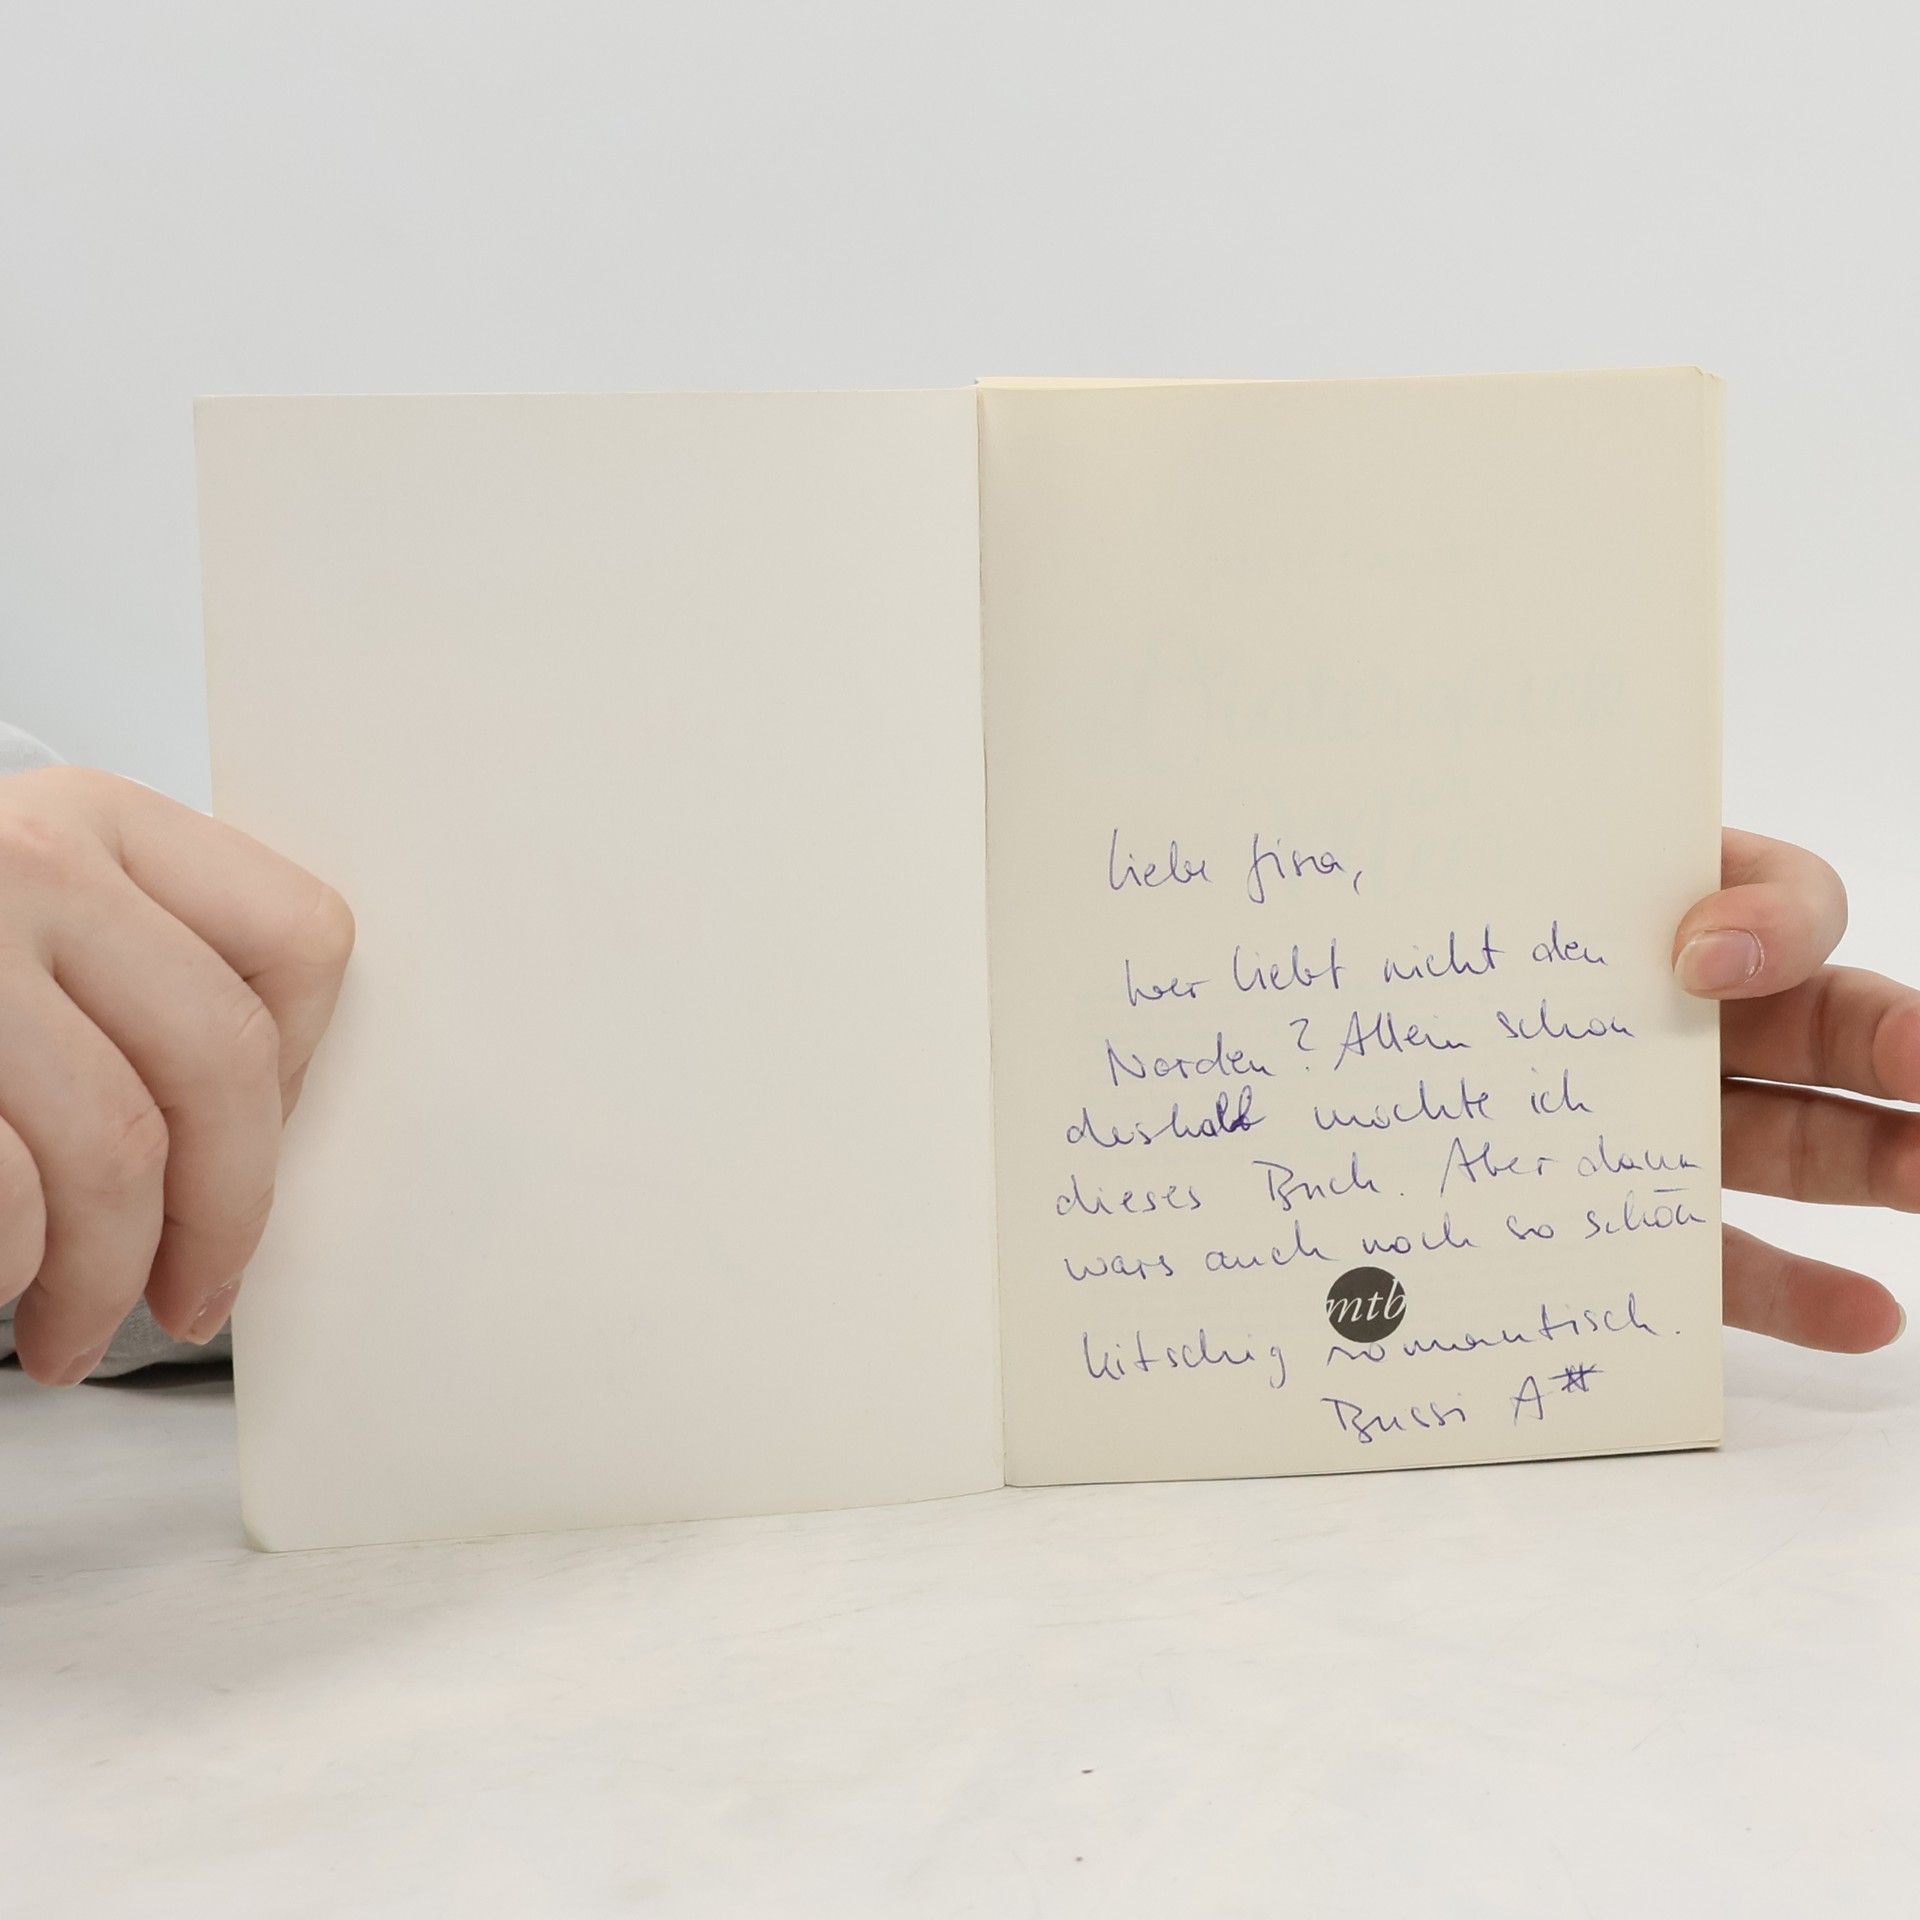 Liebe Gina,
wer liebt nicht den
Norden? Allein schon
deshalb mochte ich
dieses Buch. Aber dann
wars auch noch so schön
mtb
kitschig romantisch.
Bussi A